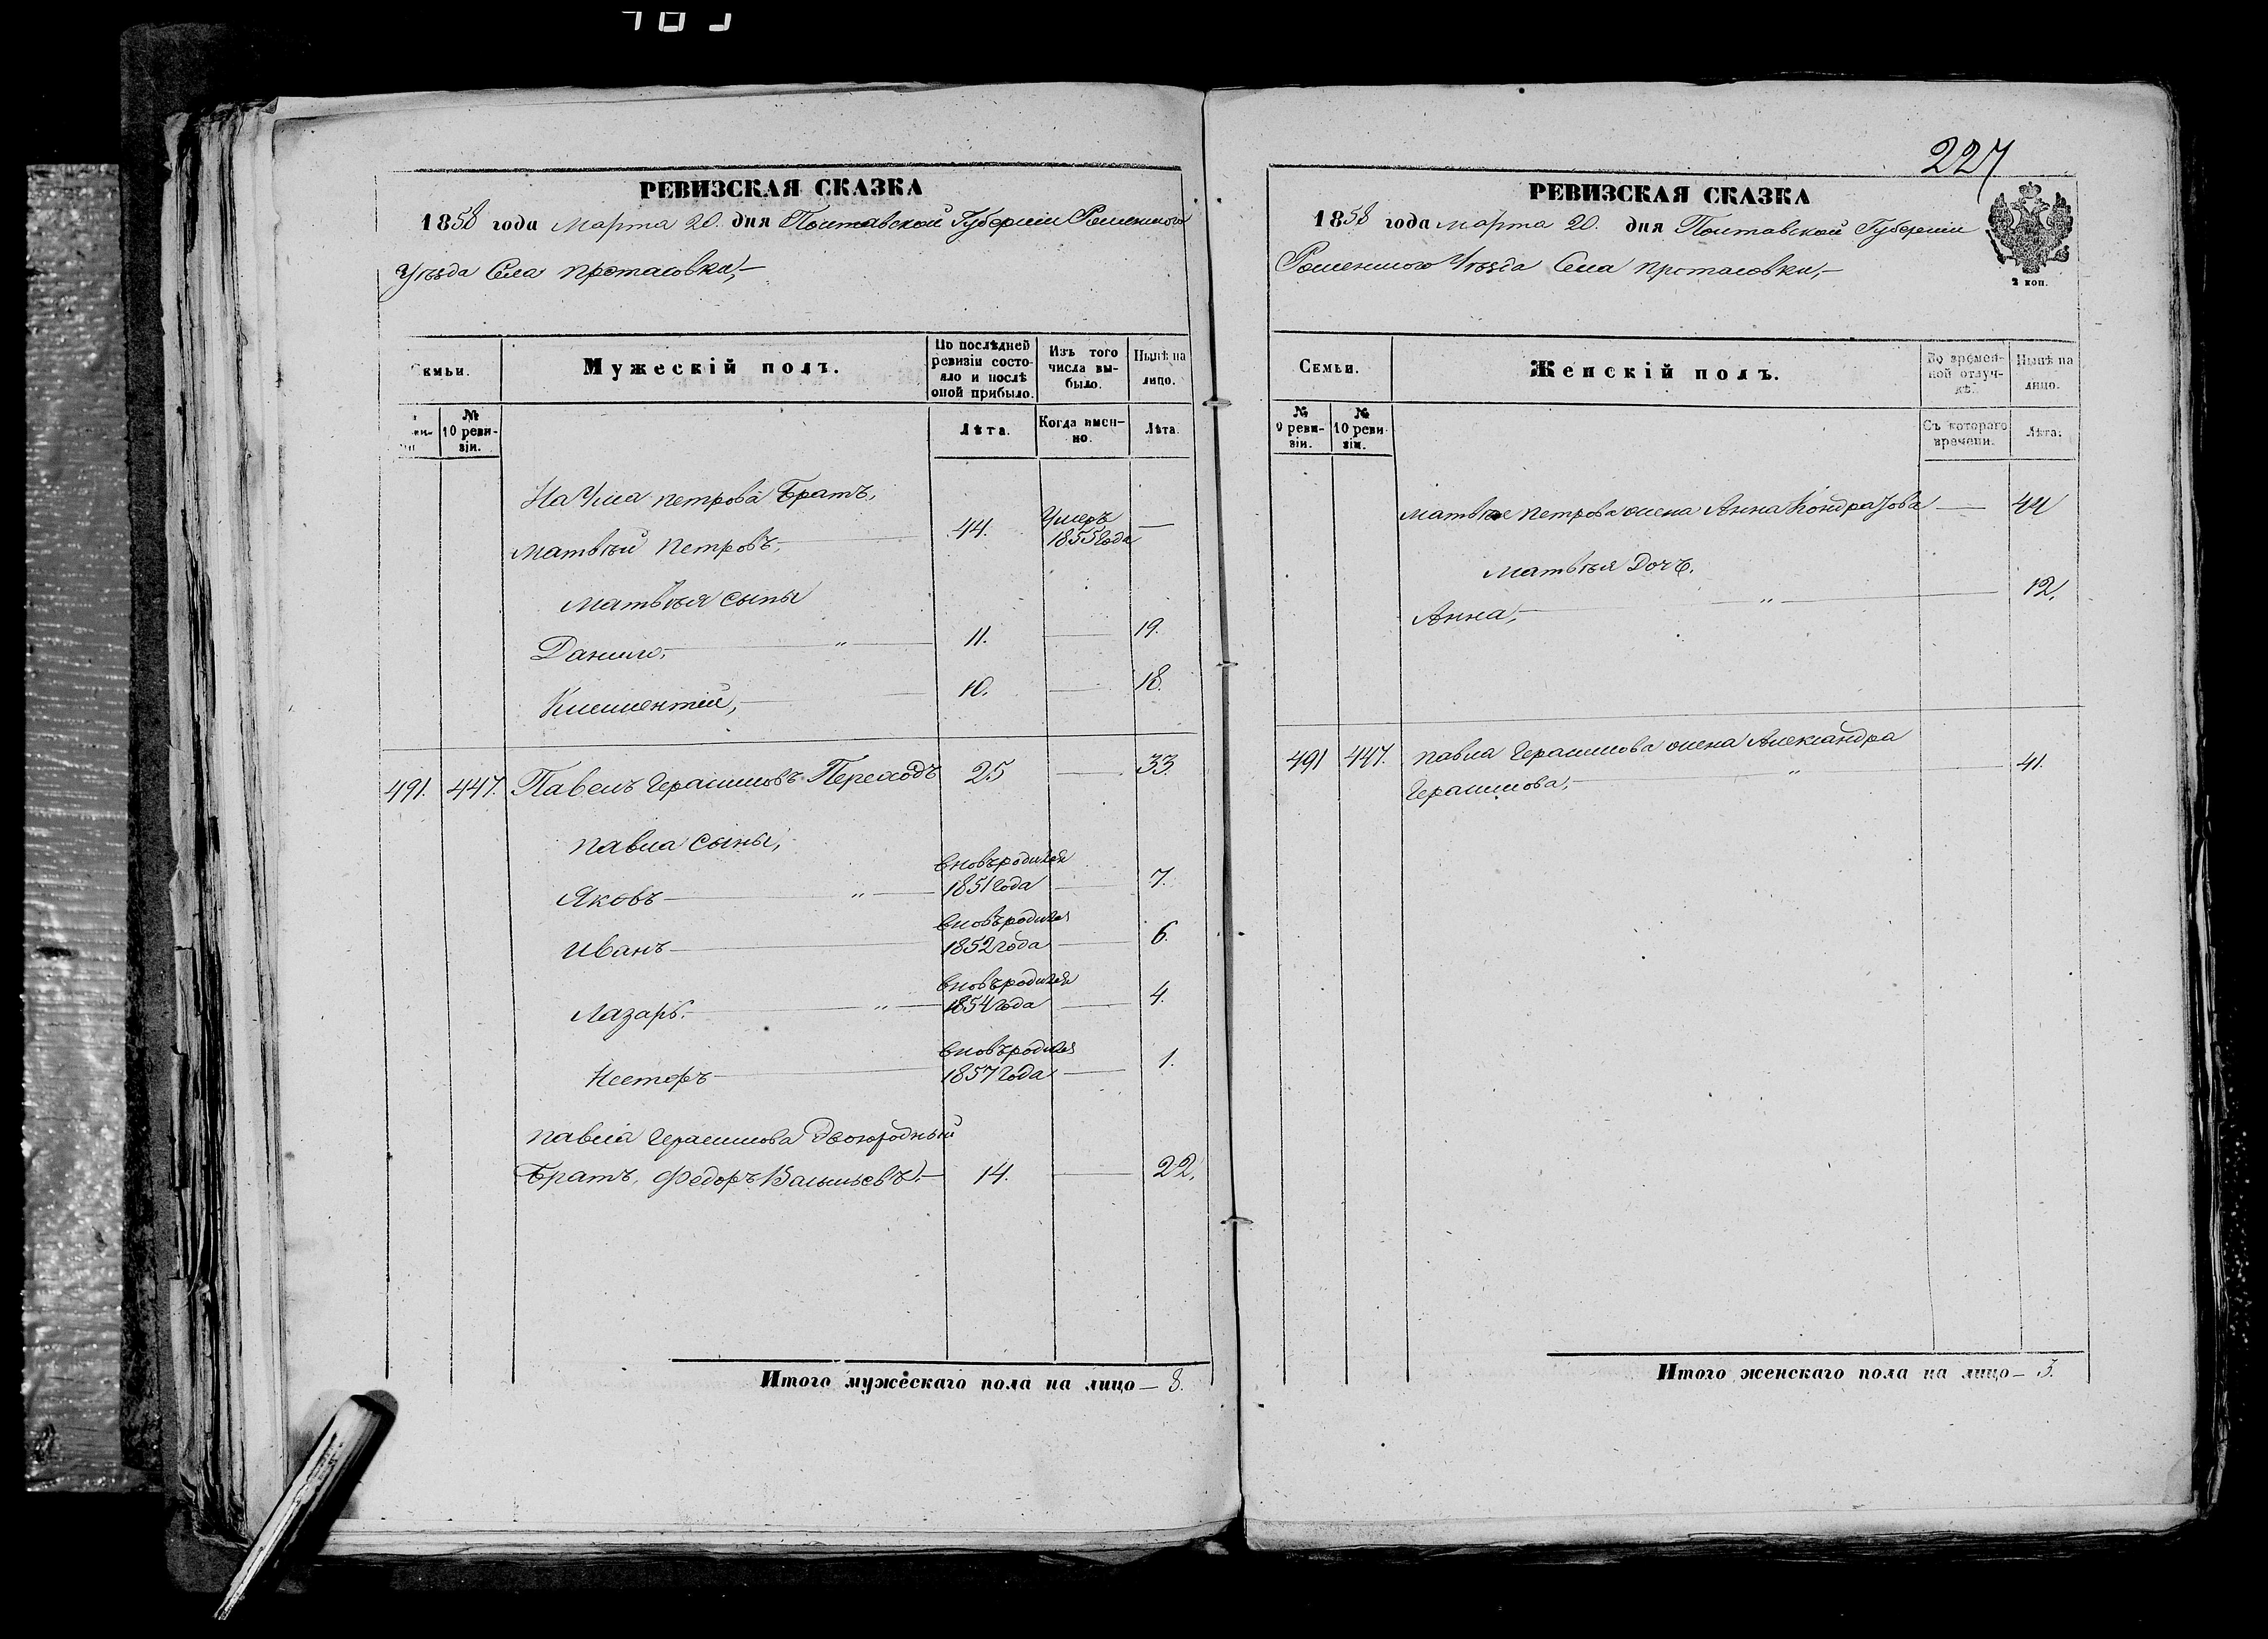 227
РЕВИЗСКАЯ СКАЗКА
1858 года Марта 20. дня Полтавской Губерніи Роменского
Уѣзда Села Протасовки,—
Семьи.
Мужескій полъ.
По послѣдней ревизіи состояло и послѣ оной прибыло.
Изъ того числа выбыло.
Нынѣ на лицо.
№ 10 ревизіи.
Лѣта.
Когда именно.
Лѣта.
Наума Петрова Братъ,
Матвѣй Петровъ, — 44. Умеръ 1855 года —
Матвѣя сыны
Данило, — " — 11. — 19.
Климентій, — 10. — 18.
491. 447. Павелъ Герасимовъ Переходъ 25 — 33.
Павла сыны,
Яковъ — " — вновь родился 1851 года — 7.
Иванъ — вновь родился 1852 года — 6.
Лазарь. — " — вновь родился 1854 года — 4.
Несторъ — вновь родился 1857 года — 1.
Павла Герасимова двоюродный
Братъ, Федоръ Васильевъ, — 14. — 22.
Итого мужескаго пола на лицо — 8.
РЕВИЗСКАЯ СКАЗКА
1858 года Марта 20. дня Полтавской Губерніи
Роменского Уѣзда Села Протасовки,—
2 коп.
Семьи.
Женскій полъ.
Во временной отлучкѣ.
Нынѣ на лицо.
№ 9 ревизіи.
№ 10 ревизіи.
Съ котораго времени.
Лѣта.
Матвѣя Петрова жена Анна — 44
Матвѣя Дочь.
Анна, — " — 12.
491 447. Павла Герасимова жена Александра
Герасимова, — " — 41.
Итого женскаго пола на лицо — 3.